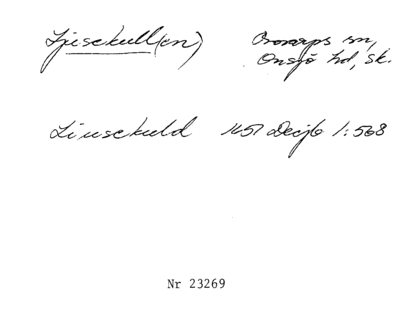 Ljusekull(en) Bosarps sn,
Onsjö hd, Sk.
Liusekuld 1651 Decjb 1:568
Nr 23269